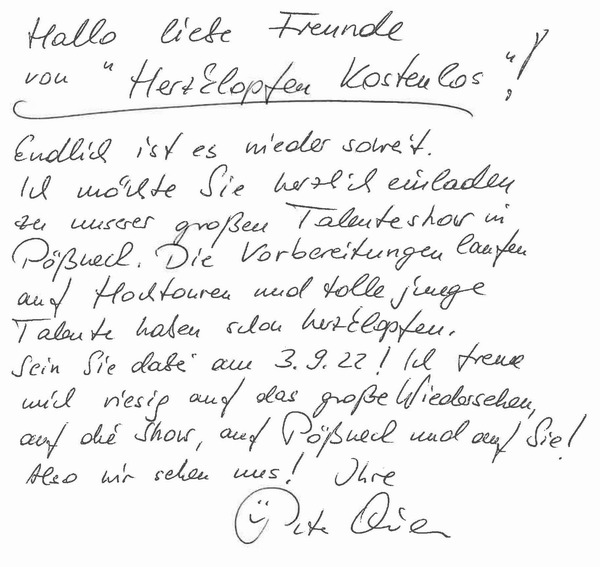 Hallo liebe Freunde
von "Herzklopfen Kostenlos"!
Endlich ist es wieder soweit.
Ich möchte Sie herzlich einladen
zu unserer großen Talenteshow in
Pößneck. Die Vorbereitungen laufen
auf Hochtouren und tolle junge
Talente haben schon herzklopfen.
Sein Sie dabei am 3.9.22! Ich freue
mich riesig auf das große Wiedersehen,
auf die Show, auf Pößneck und auf Sie!
Also wir sehen uns! Ihre